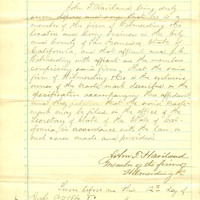 John F. Haviland being duly
sworn deposes and says that he is a
member of the firm of Wilmerding &Co
located and doing business in the City
and County of San Francisco State of
California, and that affiant and J. C.
Wilmerding with affiant are the members
composing said firm; that the said
firm of Wilmerding &Co is the
owner of the trade mark described in the
specification accompanying this affidavit
and they petition that the said trade
mark may be filed in the office of the
Secretary of State of the State of Cali-
fornia, in accordance with the law in
such cases made and provided.
John F. Haviland
Member of the firm of
Wilmerding &Co
Sworn before me this 12th day of